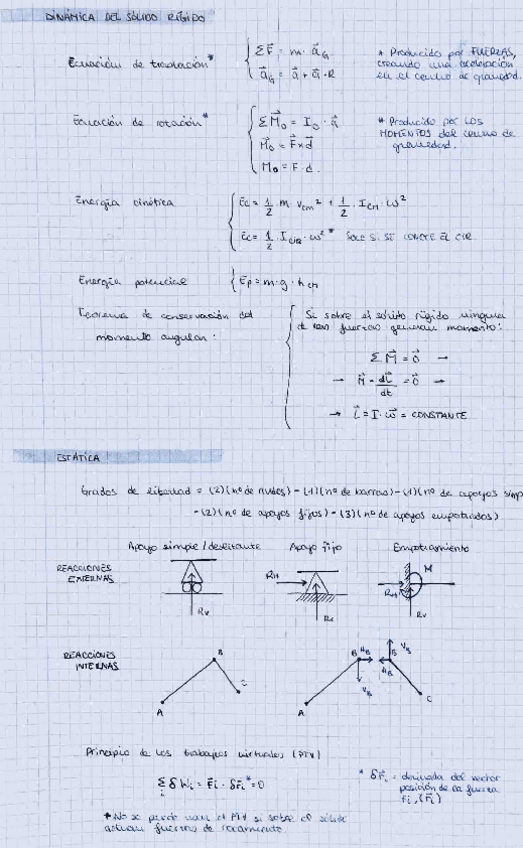 DINÁMICA DEL SÓLIDO RÍGIDO
Ecuación de traslación*
ΣF⃗ = m · a⃗_G
* Producido por FUERZAS,
creando una aceleración
en el centro de gravedad.
Ecuación de rotación*
ΣM⃗_O = I_O · α⃗
M⃗_O = F⃗ x d⃗
M_O = F · d
* Producido por LOS
MOMENTOS del centro de
gravedad.
Energía cinética
Ec = 1/2 · m · v_CM² + 1/2 · I_CM · ω²
Ec = 1/2 · I_CIR · ω² * SOLO SI SE CONOCE EL CIR
Energía potencial
Ep = m · g · h_CM
Teorema de conservación del
momento angular:
Si sobre el sólido rígido ninguna
de las fuerzas generan momento:
Σ M⃗ = 0⃗ →
→ M⃗ = dL⃗/dt = 0⃗ →
→ L⃗ = I · ω⃗ = CONSTANTE
ESTÁTICA
Grados de libertad = (2)(nº de nudos) - (1)(nº de barras) - (1)(nº de apoyos simp
- (2)(nº de apoyos fijos) - (3)(nº de apoyos empotrados)
Apoyo simple/deslizante Apoyo fijo Empotramiento
REACCIONES
EXTERNAS
R_V
R_H
R_V
M
R_H
R_V
REACCIONES
INTERNAS
A B C
A B H_B V_B
B V_B H_B C
Principio de los trabajos virtuales (PTV)
Σ_i δW_i = F⃗_i · δr⃗_i* = 0
* δr⃗_i = derivada del vector
posición de la fuerza
F_i, (r⃗_i)
* No se puede usar el PTV si sobre el sólido
actúan fuerzas de rozamiento